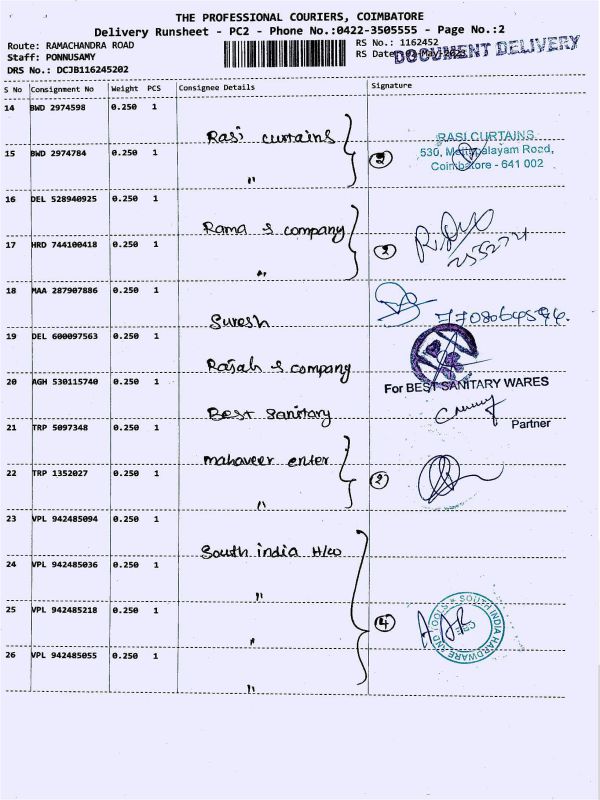 THE PROFESSIONAL COURIERS, COIMBATORE
Delivery Runsheet - PC2 - Phone No.:0422-3505555 - Page No.:2
Route: RAMACHANDRA ROAD
Staff: PONNUSAMY
DRS No.: DCJB116245202
RS No.: 1162452
RS Date
DOCUMENT DELIVERY
S No Consignment No Weight PCS Consignee Details Signature
14 BWD 2974598 0.250 1
Rasi curtains
15 BWD 2974784 0.250 1
" 2
RASI CURTAINS
530, Mettupalayam Road,
Coimbatore - 641 002
16 DEL 528940925 0.250 1
Rama & company
17 HRD 744100418 0.250 1
" 2
18 MAA 287907886 0.250 1
Suresh
19 DEL 600097563 0.250 1
Rajah & company
20 AGH 530115740 0.250 1
For BEST SANITARY WARES
Best Sanitary
Partner
21 TRP 5097348 0.250 1
mahaveer enter
22 TRP 1352027 0.250 1
" 2
23 VPL 942485094 0.250 1
South india H/w
24 VPL 942485036 0.250 1
"
25 VPL 942485218 0.250 1
" 4
SOUTH INDIA HARDWARE AND TOOLS
CBE
26 VPL 942485055 0.250 1
"